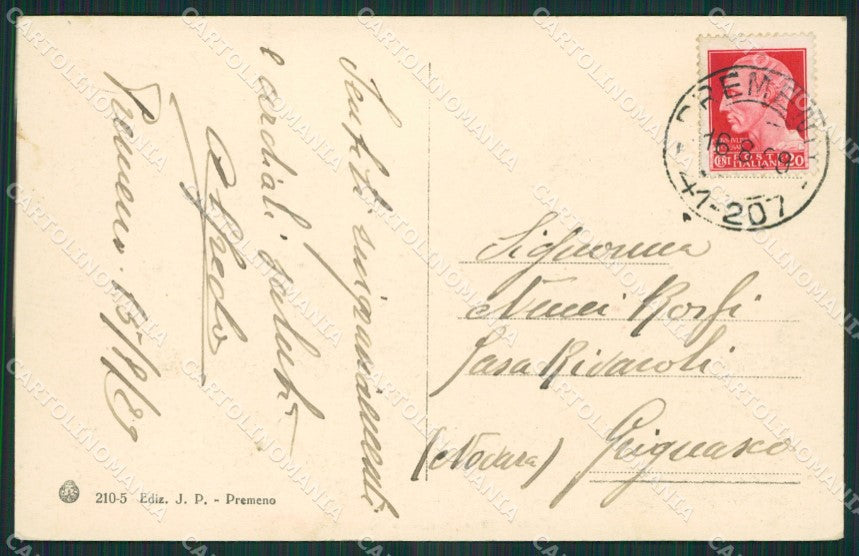 Sentiti ringraziamenti
e cordiali saluti
Alfredo
Premeno. 15/8/
210-5 Ediz. J. P. - Premeno
PREMENO
16.8.
41-207
POSTE
ITALIANE
CENT 20
Signorina
Nucci
Casa Rivaroli
(Novara) Grignasco
CARTOLINOMANIA